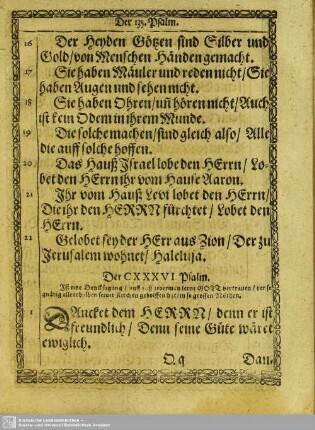 Der 135. Psalm.
16 Der Heyden Götzen sind Silber und
Gold/ von Menschen Händen gemacht.
17 Sie haben Mäuler und reden nicht/ Sie
haben Augen und sehen nicht.
18 Sie haben Ohren/ uñ hören nicht/ Auch
ist kein Odem in ihrem Munde.
19 Die solche machen/ sind gleich also/ Alle
die auff solche hoffen.
20 Das Hauß Israel lobe den HErrn/ Lo-
bet den HErrn ihr vom Hause Aaron.
21 Ihr vom Hauß Levi lobet den HErrn/
Die ihr den HERRN fürchtet/ Lobet den
HErrn.
22 Gelobet sey der HErr aus Zion/ Der zu
Jerusalem wohnet/ Haleluja.
Der CXXXVI. Psalm.
Ist eine Dancksagung/ GOTT vertrauen/ der so
gnädig seiner Kirchen geholffen hat/ in so grossen Nöthen.
1 DAncket dem HERRN/ denn er ist
freundlich/ Denn seine Güte wäret
ewiglich.
Q q Dan-